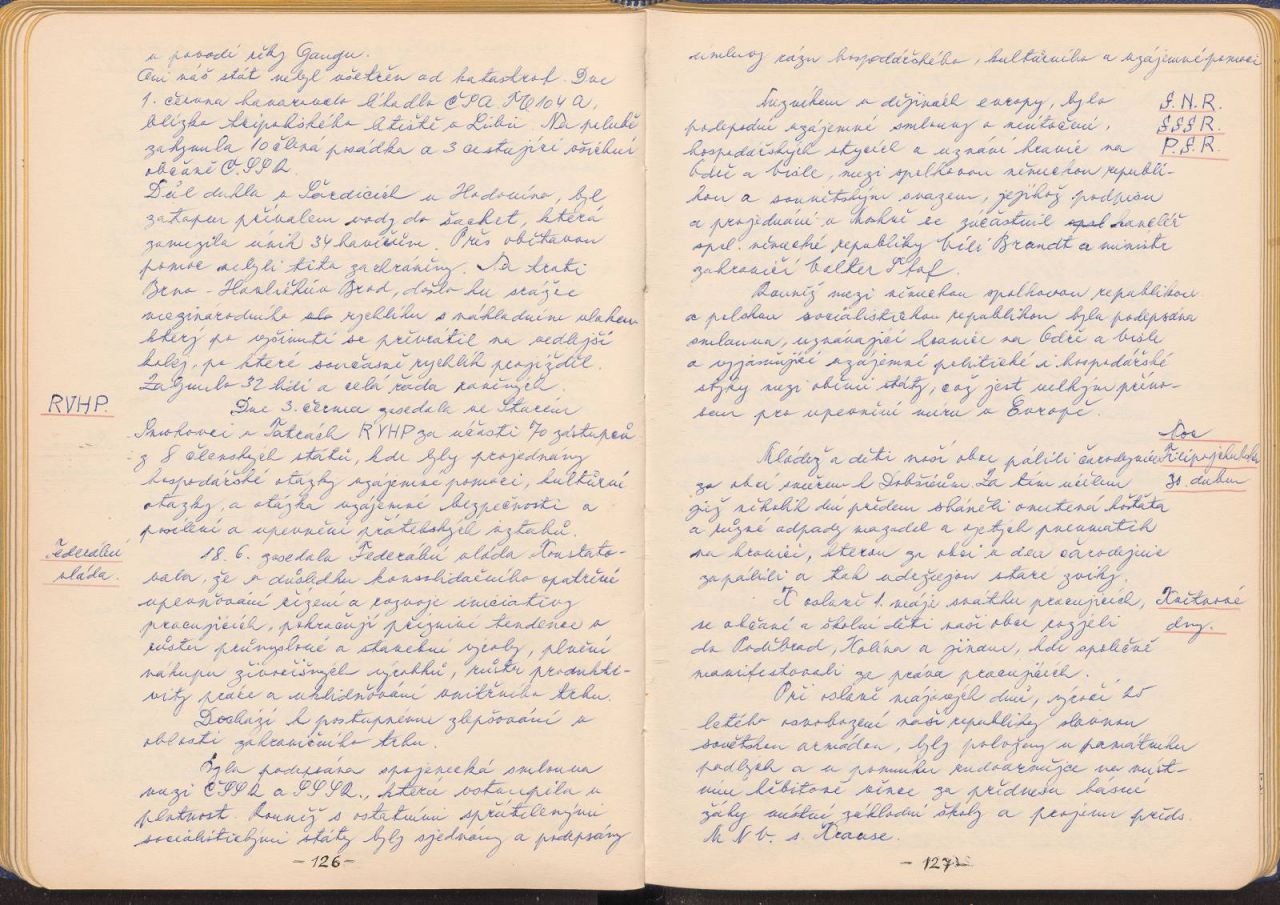 v povodí řeky Gangu.
Ani náš stát nebyl ušetřen od katastrof. Dne
1. června havarovalo letadlo ČSA
blízko tripolského letiště v Libii. Na palubě
zahynula 10 členná posádka a 3 cestující všichni
občané ČSSR.
Důl dukla v Šardicích u Hodonína, byl
zatopen přívalem vody do šachet, která
zamezila únik 34 havířům. Přes obětavou
pomoc nebyli tito zachráněny. Na trati
Brno - Havlíčkův Brod, došlo ku srážce
mezinárodního rychlíku s nákladním vlakem
který po vyšinutí se převrátil na vedlejší
kolej, po které současně rychlík projížděl.
Zahynulo 32 lidí a celá řada raněných.
RVHP.
Dne 3. června zasedala ve Starém
Smokovci v Tatrách RVHP za účasti 70 zástupců
z 8 členských států, kde byly projednány
hospodářské otázky vzájemné pomoci, kulturní
otázky, a otázka vzájemné bezpečnosti a
posílení a upevnění přátelských vztahů.
Federální
vláda.
18. 6. zasedala Federální vláda. Konstato-
vala, že v důsledku konsolidačního opatření
upevňování řízení a rozvoje iniciativy
pracujících, pokračují příznivé tendence v
růstu průmyslové a stavební výroby, plnění
nákupu živočišných výrobků, růstu produkti-
vity práce a uklidňování vnitřního trhu.
Dochází k postupnému zlepšování v
oblasti zahraničního trhu.
Byla podepsána spojenecká smlouva
mezi ČSSR a SSSR., která vstoupila v
platnost. Rovněž s ostatními spřátelenými
socialistickými státy byly sjednány a podepsány
- 126 -
smlouvy rázu hospodářského, kulturního a vzájemné pomoci
S.N.R.
SSSR.
P.S.R.
v dějinách evropy, bylo
podepsání vzájemné smlouvy o neútočení,
hospodářských stycích a uznání hranic na
Odře a Visle, mezi spolkovou německou republi-
kou a sovětským svazem, jejíhož podpisu
a projednání v Moskvě se zúčastnil kancléř
spol. německé republiky Vili Brandt a ministr
zahraničí Valter Šéf.
Rovněž mezi německou spolkovou republikou
a polskou socialistickou republikou byla podepsána
smlouva, uznávající hranice na Odře a Visle
a vyjasňující vzájemné politické i hospodářské
styky mezi oběmi státy, což jest velkým příno-
sem pro upevnění míru v Evropě.
Noc
Filipojakubská
30. duben
Mládež a děti naší obce pálili čarodejnice
za obcí směrem k Dobšicům. Za tím účelem
již několik dní předem sháněli ometená košťata
a různé odpady mazadel a ojetých pneumatik
na hranici, kterou za obcí v den čarodejnic
zapálili a tak udržujou staré zvyky.
Květnové
dny.
K oslavě 1. máje svátku pracujících,
se občané a školní děti naší obce rozjeli
do Poděbrad, Kolína a jinam, kde společně
manifestovali za práva pracujících.
Při oslavě májových dnů, výročí 25
letého osvobození naší republiky slavnou
sovětskou armádou, byly položeny u památníku
padlých a u pomníku rudoarmějce na míst-
ním hřbitově věnce za přednesu básní
žáky místní základní školy a projevu předs.
M N V. s. Krause.
- 127 -